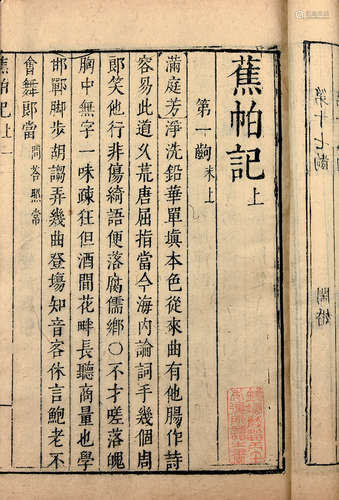 蕉帕記上
第一齣 末上
滿庭芳淨洗鉛華單塡本色從來曲有他腸作詩
容易此道久荒唐屈指當今海内論詞手幾個周
郎笑他行非傷綺語便落腐儒鄉〇不才嗟落魄
胸中無字一味疎狂但酒間花畔長聽商量也學
邯鄲脚步胡謅弄幾曲登塲知音客休言鮑老不
會舞郎當 問荅照常
蕉帕記上 一
第十七齣
鬧婚